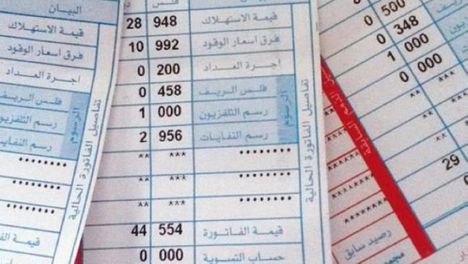 البيان
قيمة الاستهلاك 948 28
فرق اسعار الوقود 992 10
اجرة العداد 200 0
فلس الريف 458 0
رسم التلفزيون 000 1
رسم النفايات 956 2
******** *** **
******** *** **
******** *** **
قيمة الفاتورة 554 44
حساب التسوية 000 0
الرسوم
تفاصيل الفاتورة الحالية
البيان
قيمة الاستهلاك
فرق اسعار الوقود
اجرة العداد
فلس الريف
رسم التلفزيون
رسم النفايات
********
********
********
قيمة الفاتورة
حساب التسوية
الرسوم
تفاصيل الفاتورة الحالية
500 0
348 0
000 1
000 0
*** **
*** **
*** **
29
0
رصيد سابق